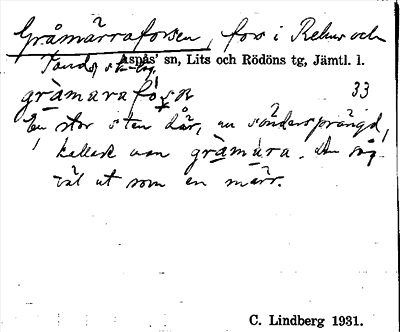 Gråmärraforsen, fors i Rekus och
Tands
Aspås' sn, Lits och Rödöns tg, Jämtl. l.
gràmarafo̱ṣn 33
En stor sten där, nu söndersprängd,
kallade man gràmara. Den såg
väl ut som en märr.
C. Lindberg 1931.